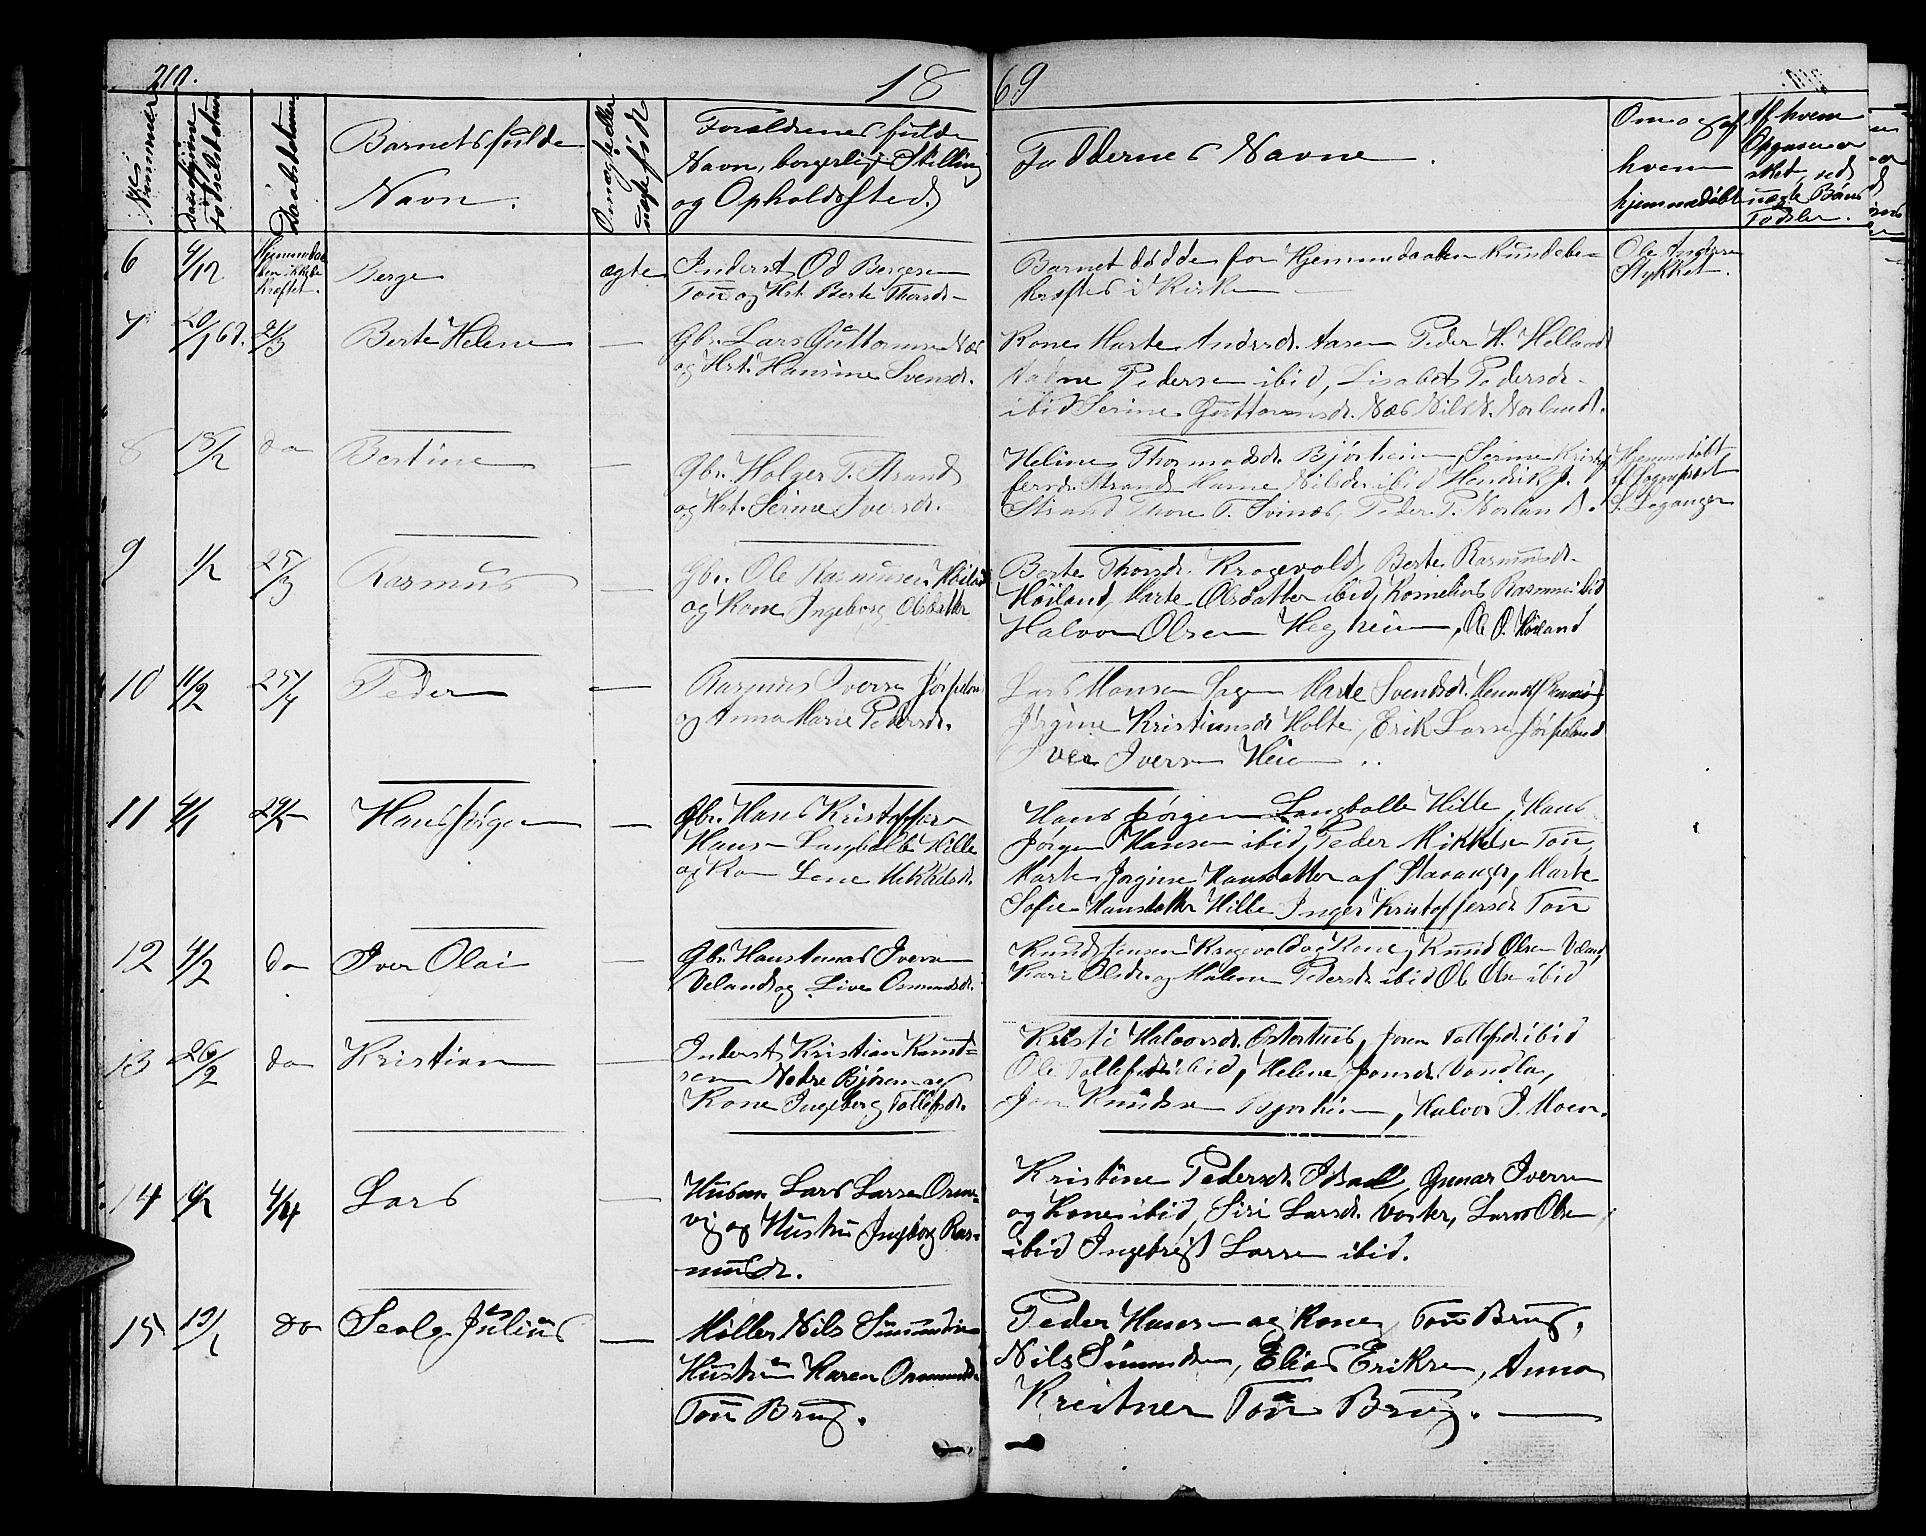 210.
18 69
No
Nummer
Fødselsdatum
Daabsdatum
Barnets fulde
Navn.
Om ægte eller
uægte født
Forældrenes fulde
Navn, borgerlig Stilling
og Opholdssted.
Faddernes Navne.
Om og af
hvem
hjemmedøbt
Af hvem
sket ved
uægte Børns
Fødsler.
6 4/12 Berge ægte Inderst Od Bergesen
Tou og Hst. Berte Thorsd.
Barnet døde før Hjemmedaaben kunde be-
kræftes i Kirken
Ole
Stykket.
7 20/1 67. 21/3 Berte Helene — Gbr. Lars Guttormsen Næs
og Hst. Hansine Svensdr.
Kone Marte Andersdr. Aasen Peder H. Helland
Pedersen ibid, Lisabet Pedersdr.
ibid Serine Guttormsdr. Næs Nils N. Norland.
8 18/2 do Bertine — Gbr. Holger T. Strand
og Hst. Serine Iversdr.
Heline Thormodsdr. Bjørheim, Serine Kristof
fersdr. Strand Marne Nilsdr. ibid Hendrik J.
Strand Thore T. Svines, Peder P. Norland.
Hjemmedøbt
af Sogneprest
S. Leganger
9 1/2 25/3 Rasmus — Gbr. Ole Rasmussen Høiland
og Kone Ingeborg Olsdatter
Berte Thorsdr. Kragevold, Berte Rasmusdr.
Høiland, Marte Olsdatter ibid, Kornelius Rasmus. ibid
Halvor Olsen Hegheim, Ole O. Høiland
10 11/2 25/4 Peder — Rasmus Iversen Jørpeland
og Anna Marie Pedersdr.
Lars Monsen Sagen Marte Svendsdr.
Jørgine Kristiansdr. Holte, Erik Larsen Jørpeland
Iver Iversen Heien
11 4/1 Hans Jørgen — Gbr. Hans Kristoffer
Hansen Langballe Hille
og Kone Lene Mikkelsdr.
Hans Jørgen Langballe Hille, Hans
Jørgen Hansen ibid, Peder Mikkelsen Tou,
Marte Jørgine Hansdatter af Stavanger, Marte
Sofie Hansdatter Hille Inger Kristoffersdr. Tou
12 4/2 do Iver Olai — Gbr. Hans Tomas Iversen
Veland og Live Osmundsdr.
Knud Jensen Kragevold og Kone, Knud Olsen Veland,
Kari Olsdr. og Malene Pedersdr. ibid Ole Olsen ibid
13 26/2 do Kristian — Inderst Kristian Knud-
sen Nedre Bjørem og
Kone Ingeborg Tollefsdr.
Kristi Halvorsdr. Østerhus, Joren Tollefsdr. ibid
Ole Tollefsen ibid, Helene Jonsdr. Vandla,
Jon Knudsen Bjørheim, Halvor J. Moen.
14 4/4 Lars — Husm. Lars Larsen Osme-
vig og Hustru Ingeborg Ras-
musdr.
Kristine Pedersdr. Idsal, Gunar Iversen
og Kone ibid, Siri Larsdr. Voster, Lars Olsen
ibid Ingebregt Larsen ibid.
15 do Julius — Møller Nils Simundsen
Hustru Karen Osmunds.
Tou Brug.
Peder Hansen og Kone, Tou Brug,
Nils Simundsen, Elias Eriksen, Anna
Kreitner Tou Brug.